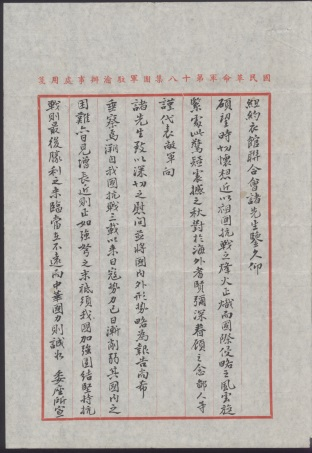 國民革命軍第十八集團軍駐渝辦事處用箋
紐約衣館聯合會諸先生鑒久仰
碩望時切懷想近以祖國抗戰之烽火正熾而國際侵略之風雲旋
緊處此驚震撼之秋對於海外賢彌深眷顧之念鄙人等
謹代表敝軍向
諸先生致以深切之慰問並將國內外形勢略為報告尚希
垂察焉溯自我國抗戰三載以來日寇勢力已日漸削弱其國內之
困難亦日見增長近則正如強弩之末祗須我國加強團結堅持抗
戰則最後勝利之來臨當在不遠而中華國力則誠如 委座所宣